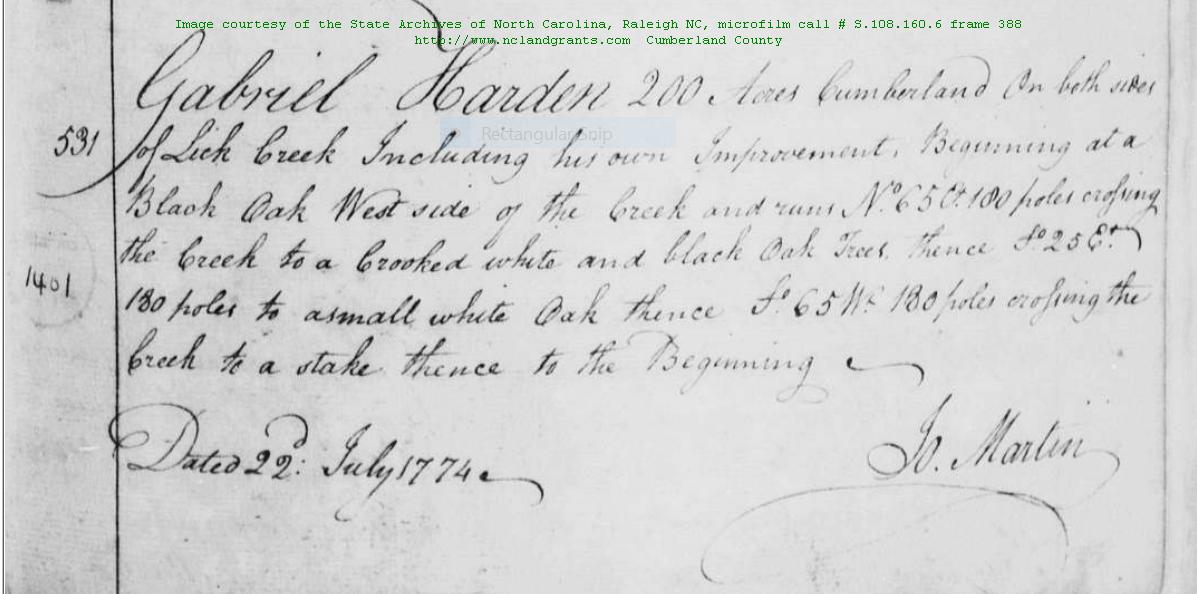 Image courtesy of the State Archives of North Carolina, Raleigh NC, microfilm call # S.108.160.6 frame 388
http://www.nclandgrants.com Cumberland County
Gabriel Harden 200 Acres Cumberland On both sides
531
of Lick Creek Including his own Improvement, Beginning at a
Rectangular Snip
Black Oak West side of the Creek and runs No. 65 Et. 180 poles crossing
the Creek to a Crooked white and black Oak Trees, thence So. 25 Et.
1401
180 poles to a small white Oak thence So. 65 Wt. 180 poles crossing the
Creek to a stake thence to the Beginning
Dated 22d: July 1774
Jo. Martin